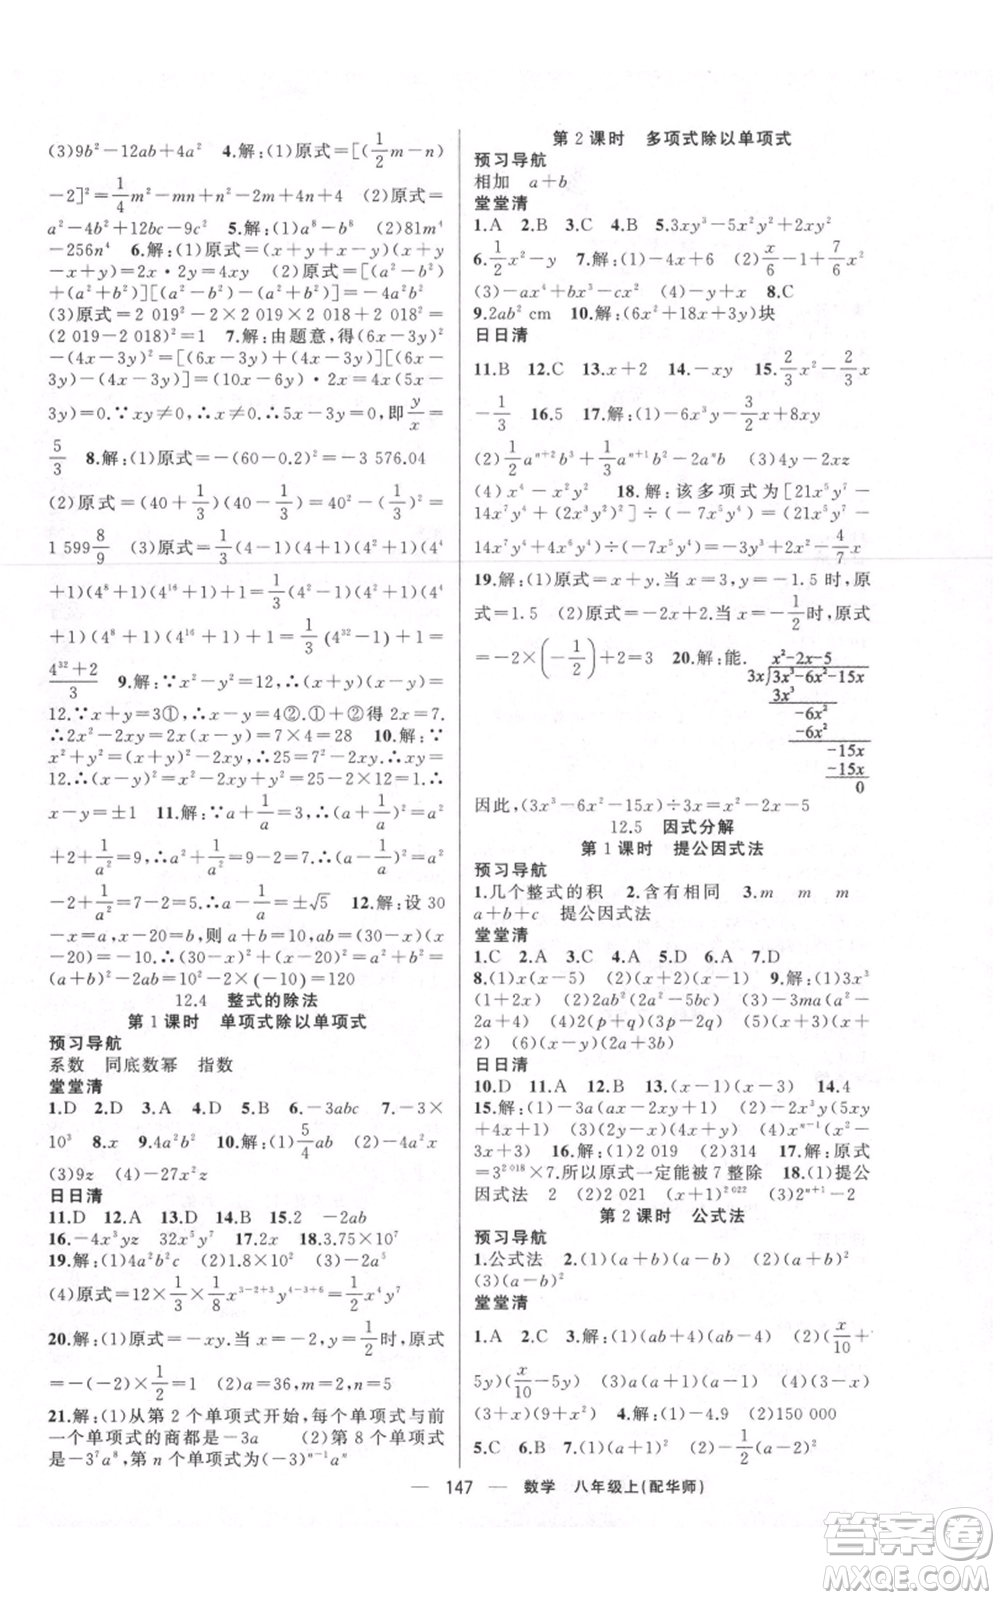 (3)9b²-12ab+4a² 4.解:(1)原式=[(1/2m-n)
-2]²=1/4m²-mn+n²-2m+4n+4 (2)原式=
a²-4b²+12bc-9c² 5.解:(1)a⁸-b⁸ (2)81m⁴
-256n⁴ 6.解:(1)原式=(x+y+x-y)(x+y-
x+y)=2x·2y=4xy (2)原式=[(a²-b²)
+(a²+b²)][(a²-b²)-(a²+b²)]=-4a²b²
(3)原式=2 019²-2×2 019×2 018+2 018²=
(2 019-2 018)²=1 7.解:由题意,得(6x-3y)²
-(4x-3y)²=[(6x-3y)+(4x-3y)][(6x-
3y)-(4x-3y)]=(10x-6y)·2x=4x(5x-
3y)=0.∵xy≠0,∴x≠0.∴5x-3y=0,即y/x=
5/3 8.解:(1)原式=-(60-0.2)²=-3 576.04
(2)原式=(40+1/3)(40-1/3)=40²-(1/3)²=
1 599 8/9 (3)原式=1/3(4-1)(4+1)(4²+1)(4⁴
+1)(4⁸+1)(4¹⁶+1)+1=1/3(4²-1)(4²+1)(4⁴
+1)(4⁸+1)(4¹⁶+1)+1=1/3(4³²-1)+1=
4³²+2/3 9.解:∵x²-y²=12,∴(x+y)(x-y)=
12.∵x+y=3①,∴x-y=4②.①+②得 2x=7.
∴2x²-2xy=2x(x-y)=7×4=28 10.解:∵
x²+y²=25,x+y=7,∴(x+y)²=x²+y²+
2xy=49.∴2xy=24,xy=12.∴
x-y=±1 11.解:∵a+1/a=3,∴(a+1/a)²=a²
+2+1/a²=9.∴a²+1/a²=7.∴(a-1/a)²=a²
-2+1/a²=7-2=5.∴a-1/a=±√5 12.解:设 30
-x=a,x-20=b,则a+b=10.∵(30-x)(x-
20)=-10,∴(30-x)²+(x-20)²=a²+b²=
(a+b)²-2ab=10²-2×(-10)=120
12.4 整式的除法
第 1 课时 单项式除以单项式
预习导航
系数 同底数幂 指数
堂堂清
1.D 2.D 3.A 4.D 5.B 6.-3abc 7.-3×
10³ 8.x 9.4a²b² 10.解:(1)5/4ab (2)-4a²x
(3)9z (4)-27x²z
日日清
11.D 12.A 13.D 14.B 15.2 -2ab
16.-4x³yz 32x⁵z⁵ 17.2x 18.3.75×10⁷
19.解:(1)4a²b²c (2)1.8×10² (3)-a
(4)原式=12×1/3×1/8x³⁻²⁺³y⁴⁻³⁺⁶=1/2x⁴y⁷
20.解:(1)原式=-xy.当 x=-2,y=1/2时,原式
=-(-2)×1/2=1 (2)a=36,m=2,n=5
21.解:(1)从第 2 个单项式开始,每个单项式与前
一个单项式的商都是-3a (2)第 8 个单项式是
-3⁷a⁸,第 n 个单项式为(-3)ⁿ⁻¹aⁿ
第 2 课时 多项式除以单项式
预习导航
相加 a+b
堂堂清
1.A 2.B 3.C 4.B 5.3xy³-5x²y²+2xy²
6.1/2x²-y 7.解:(1)-4x+6 (2)x/6-1+7/6x²
(3)-ax⁴+bx³-cx² (4)-y 8.C
9.2ab² cm 10.解:(6x²+18x+3y)块
日日清
11.B 12.C 13.x+2 14.-xy 15.2/3x²-2/3x
-1/3 16.5 17.解:(1)-6x³y-3/2x+8xy
(2)1/2aⁿ⁺²b³+1/3aⁿ⁺¹b²-2aⁿb (3)4y-2xz
(4)x⁴-x²y² 18.解:该多项式为[21x⁵y⁷-
14x⁷y⁴+(2x³y²)²]÷(-7x⁵y⁴)=(21x⁵y⁷-
14x⁷y⁴+4x⁶y⁴)÷(-7x⁵y⁴)=-3y³+2x²-4/7x
19.解:(1)原式=x+y.当 x=3,y=-1.5 时,原
式=1.5 (2)原式=-2x+2.当 x=-1/2时,原式
=-2×(-1/2)+2=3 20.解:能. x²-2x-5
3x√3x³-6x²-15x
3x³
-6x²
-6x²
-15x
-15x
0
因此,(3x³-6x²-15x)÷3x=x²-2x-5
12.5 因式分解
第 1 课时 提公因式法
预习导航
1.几个整式的积 2.含有相同 3.m m m
a+b+c 提公因式法
堂堂清
1.C 2.A 3.C 4.D 5.D 6.A 7.D
8.(1)x(x-5) (2)(x+2)(x-1) 9.解:(1)3x³
(1+2x) (2)2a²(2a²-a+3) (3)-3ma(a²-
2a+4) (4)2(p+q)(3p-2q) (5)(x+3)(x-
2) (6)(x-y)(a-b-c)
日日清
10.D 11.A 12.B 13.(x-1)(x-3) 14.4
15.解:(1)-3a(a-b+2c) (2)5xy(y+5x)
(3)(a-3)(a²-3a+1) (4)xⁿ⁻¹(x²-
3x+3) 16.解:(1)2 019 (2)314 17.解:原式
=3²⁰¹⁸×7,所以原式一定能被 7 整除 18.(1)提公
因式法 2 (2)2 021 (x+1)²⁰²² (3)2ⁿ⁺¹-2
第 2 课时 公式法
预习导航
1.公式法 2.(1)(a+b)(a-b) (2)(a+b)²
(3)(a-b)²
堂堂清
1.A 2.C 3.解:(1)(ab+4)(ab-4) (2)(x/10+
5y)(x/10-5y) (3)3(2x+y)(2x-y) (4)
(3+x)(9+x) 4.解:(1)-4.9 (2)150 000
5.C 6.D 7.(1)(a+1)² (2)-1/2(a-2)²
— 147 — 数学 八年级上(配华师)
答案圈
MXQE.COM